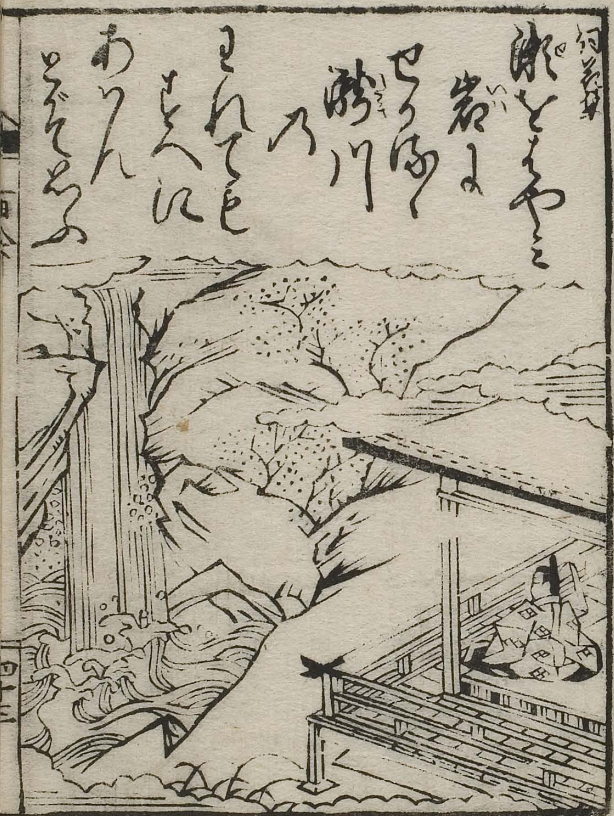 詞花集
瀬をはやみ
岩に
せかるゝ
瀧川
乃
われても
すへに
あはん
とぞ思ふ